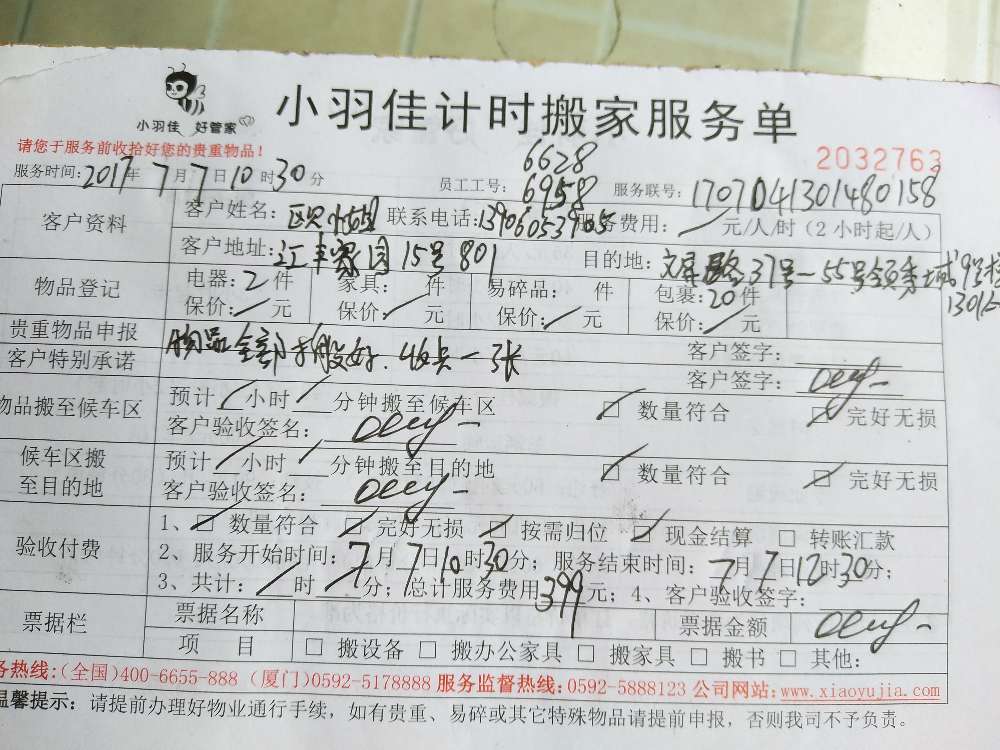 小羽佳 好管家
小羽佳计时搬家服务单
请您于服务前收拾好您的贵重物品！
2032763
6628
服务时间：2017年7月7日10时30分 员工工号：6958 服务联号：1707041301480158
客户资料 客户姓名： 联系电话：13906053905 服务费用： 元/人/时（2小时起/人）
客户地址：汇丰家园15号801 目的地：文屏路37号-55号领秀城9号楼
1301
物品登记 电器：2件 家具： 件 易碎品： 件 包裹：20件
保价： 元 保价： 元 保价： 元 保价： 元
贵重物品申报 物品全部搬好.收共一张 客户签字：
客户特别承诺 客户签字：
物品搬至候车区 预计 小时 分钟搬至候车区 ☑ 数量符合 ☑ 完好无损
客户验收签名：
候车区搬至目的地 预计 小时 分钟搬至目的地 ☑ 数量符合 ☑ 完好无损
客户验收签名：
验收付费 1、☑ 数量符合 ☑ 完好无损 ☑ 按需归位 ☑ 现金结算 □ 转账汇款
2、服务开始时间：7月7日10时30分；服务结束时间：7月7日12时30分；
3、共计： 时 分；总计服务费用399元；4、客户验收签字：
票据栏 票据名称 票据金额
项 目 □ 搬设备 □ 搬办公家具 □ 搬家具 □ 搬书 □ 其他：
务热线：（全国）400-6655-888 （厦门）0592-5178888 服务监督热线：0592-5888123 公司网站：www.xiaoyujia.com
温馨提示：请提前办理好物业通行手续，如有贵重、易碎或其它特殊物品请提前申报，否则我司不予负责。